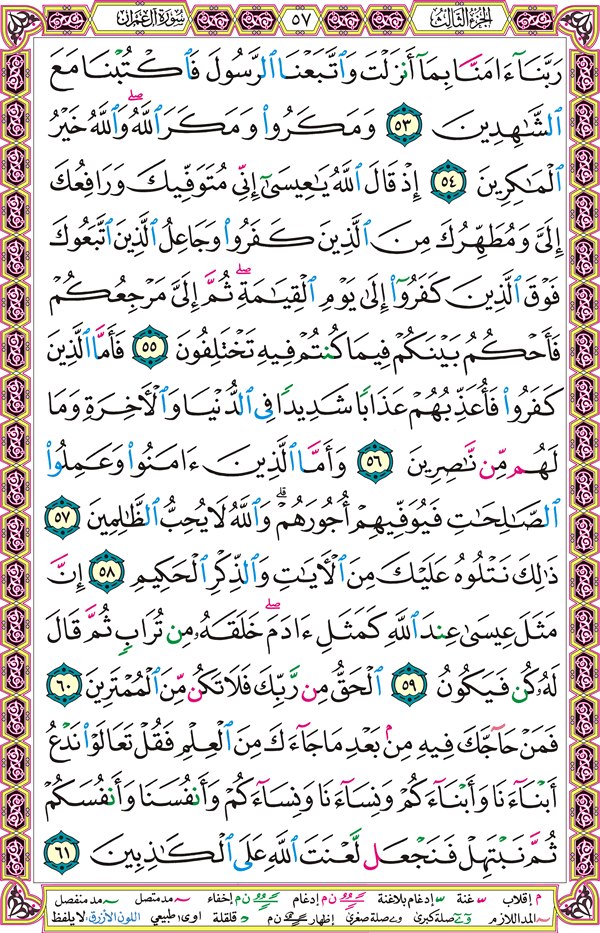 الجزء الثالث ٥٧ سورة آل عمران
رَبَّنَآ ءَامَنَّا بِمَآ أَنزَلْتَ وَٱتَّبَعْنَا ٱلرَّسُولَ فَٱكْتُبْنَا مَعَ
ٱلشَّٰهِدِينَ ٥٣ وَمَكَرُوا۟ وَمَكَرَ ٱللَّهُ ۖ وَٱللَّهُ خَيْرُ
ٱلْمَٰكِرِينَ ٥٤ إِذْ قَالَ ٱللَّهُ يَٰعِيسَىٰٓ إِنِّى مُتَوَفِّيكَ وَرَافِعُكَ
إِلَىَّ وَمُطَهِّرُكَ مِنَ ٱلَّذِينَ كَفَرُوا۟ وَجَاعِلُ ٱلَّذِينَ ٱتَّبَعُوكَ
فَوْقَ ٱلَّذِينَ كَفَرُوٓا۟ إِلَىٰ يَوْمِ ٱلْقِيَٰمَةِ ۖ ثُمَّ إِلَىَّ مَرْجِعُكُمْ
فَأَحْكُمُ بَيْنَكُمْ فِيمَا كُنتُمْ فِيهِ تَخْتَلِفُونَ ٥٥ فَأَمَّا ٱلَّذِينَ
كَفَرُوا۟ فَأُعَذِّبُهُمْ عَذَابًا شَدِيدًا فِى ٱلدُّنْيَا وَٱلْءَاخِرَةِ وَمَا
لَهُم مِّن نَّٰصِرِينَ ٥٦ وَأَمَّا ٱلَّذِينَ ءَامَنُوا۟ وَعَمِلُوا۟
ٱلصَّٰلِحَٰتِ فَيُوَفِّيهِمْ أُجُورَهُمْ ۗ وَٱللَّهُ لَا يُحِبُّ ٱلظَّٰلِمِينَ ٥٧
ذَٰلِكَ نَتْلُوهُ عَلَيْكَ مِنَ ٱلْءَايَٰتِ وَٱلذِّكْرِ ٱلْحَكِيمِ ٥٨ إِنَّ
مَثَلَ عِيسَىٰ عِندَ ٱللَّهِ كَمَثَلِ ءَادَمَ ۖ خَلَقَهُۥ مِن تُرَابٍ ثُمَّ قَالَ
لَهُۥ كُن فَيَكُونُ ٥٩ ٱلْحَقُّ مِن رَّبِّكَ فَلَا تَكُن مِّنَ ٱلْمُمْتَرِينَ ٦٠
فَمَنْ حَآجَّكَ فِيهِ مِنۢ بَعْدِ مَا جَآءَكَ مِنَ ٱلْعِلْمِ فَقُلْ تَعَالَوْا۟ نَدْعُ
أَبْنَآءَنَا وَأَبْنَآءَكُمْ وَنِسَآءَنَا وَنِسَآءَكُمْ وَأَنفُسَنَا وَأَنفُسَكُمْ
ثُمَّ نَبْتَهِلْ فَنَجْعَل لَّعْنَتَ ٱللَّهِ عَلَى ٱلْكَٰذِبِينَ ٦١
م إقلاب غنة إدغام بلاغنة ن م إدغام ن م إخفاء مد متصل مد منفصل
المد اللازم صلة كبرى صلة صغرى إظهار ن م قلقلة اوى: طبيعي اللون الأزرق: لا يلفظ